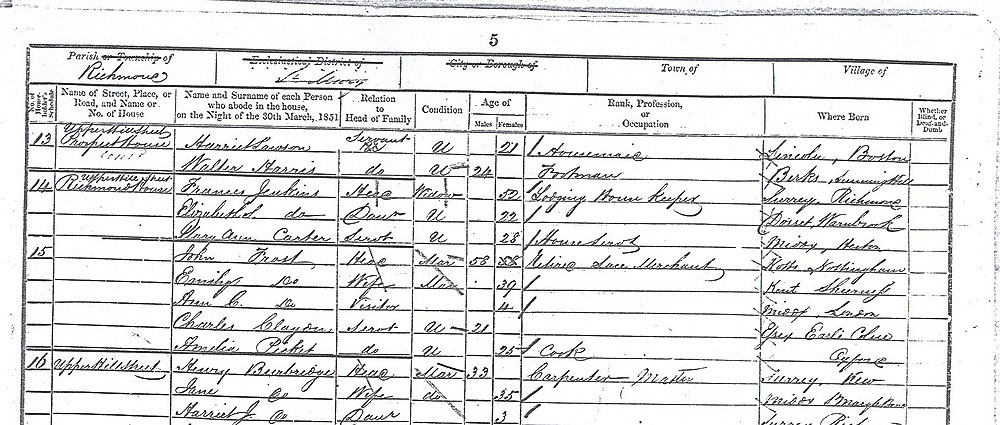 5
Parish or Township of Ecclesiastical District of City or Borough of Town of Village of
Richmond St Mary
No. of House-holder's Schedule Name of Street, Place, or Road, and Name or No. of House Name and Surname of each Person who abode in the house, on the Night of the 30th March, 1851 Relation to Head of Family Condition Age of Males Females Rank, Profession, or Occupation Where Born Whether Blind, or Deaf-and-Dumb
13 Upper Hill Street Prospect House Harriet Lawson Servant U 21 Housemaid Lincoln, Boston
Walter Harris do U 24 Footman Berks, Sunning Hill
14 Upper Hill Street Richmond House Frances Jenkins Head Widow 52 Lodging House Keeper Surrey Richmond
Elizabeth S. do Daur U 22 Dorset
Mary Ann Carter Servt U 28 House Servt Middx, Heston
15 John Frost Head Mar 58 Retired Lace Merchant Notts Nottingham
Emily do Wife Mar 39 Kent Sheerness
Ann C. do Visitor 4 Middx, London
Charles Claydon Servt U 21 Essex Earls Colne
Amelia do U 25 Cook Oxford
16 Upper Hill Street Henry Head Mar 33 Carpenter Master Surrey, Kew
Jane do Wife do 35 Middx
Harriet J. do Daur 3 Surrey